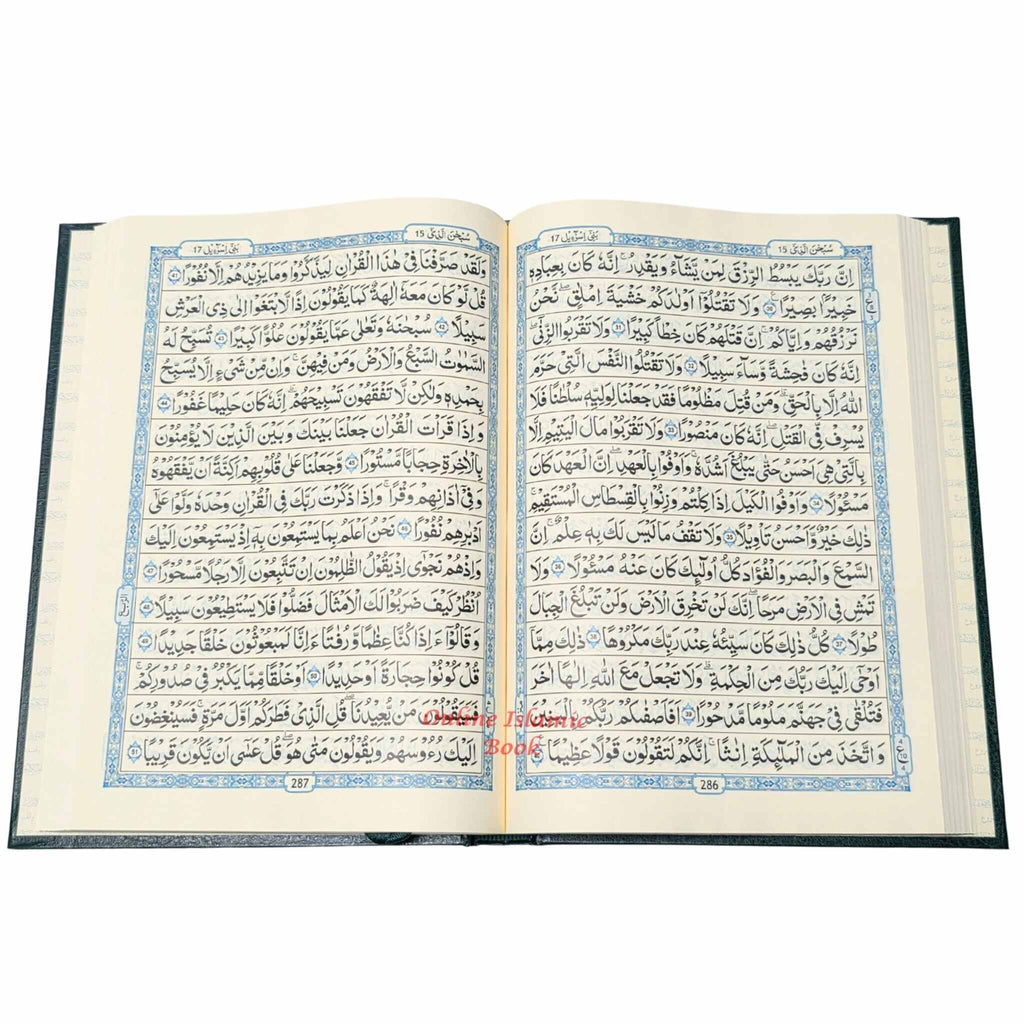 سُبۡحٰنَ الَّذِیۡ 15
بَنِیۡۤ اِسۡرَآءِیۡل 17
اِنَّ رَبَّكَ یَبۡسُطُ الرِّزۡقَ لِمَنۡ یَّشَآءُ وَیَقۡدِرُ ؕ اِنَّهٗ كَانَ بِعِبَادِهٖ
خَبِیۡرًۢا بَصِیۡرًا 30 وَلَا تَقۡتُلُوۡۤا اَوۡلَادَكُمۡ خَشۡیَةَ اِمۡلَاقٍ ؕ نَحۡنُ
نَرۡزُقُهُمۡ وَاِیَّاكُمۡ ؕ اِنَّ قَتۡلَهُمۡ كَانَ خِطۡاً كَبِیۡرًا 31 وَلَا تَقۡرَبُوا الزِّنٰۤی
اِنَّهٗ كَانَ فَاحِشَةً ؕ وَسَآءَ سَبِیۡلًا 32 وَلَا تَقۡتُلُوا النَّفۡسَ الَّتِیۡ حَرَّمَ
اللّٰهُ اِلَّا بِالۡحَقِّ ؕ وَمَنۡ قُتِلَ مَظۡلُوۡمًا فَقَدۡ جَعَلۡنَا لِوَلِیِّهٖ سُلۡطٰنًا فَلَا
یُسۡرِفۡ فِّی الۡقَتۡلِ ؕ اِنَّهٗ كَانَ مَنۡصُوۡرًا 33 وَلَا تَقۡرَبُوۡا مَالَ الۡیَتِیۡمِ اِلَّا
بِالَّتِیۡ هِیَ اَحۡسَنُ حَتّٰی یَبۡلُغَ اَشُدَّهٗ ۪ وَاَوۡفُوۡا بِالۡعَهۡدِ ۚ اِنَّ الۡعَهۡدَ كَانَ
مَسۡـُٔوۡلًا 34 وَاَوۡفُوا الۡكَیۡلَ اِذَا كِلۡتُمۡ وَزِنُوۡا بِالۡقِسۡطَاسِ الۡمُسۡتَقِیۡمِ ؕ
ذٰلِكَ خَیۡرٌ وَّاَحۡسَنُ تَاۡوِیۡلًا 35 وَلَا تَقۡفُ مَا لَیۡسَ لَكَ بِهٖ عِلۡمٌ ؕ اِنَّ
السَّمۡعَ وَالۡبَصَرَ وَالۡفُؤَادَ كُلُّ اُولٰٓئِكَ كَانَ عَنۡهُ مَسۡـُٔوۡلًا 36 وَلَا
تَمۡشِ فِی الۡاَرۡضِ مَرَحًا ۚ اِنَّكَ لَنۡ تَخۡرِقَ الۡاَرۡضَ وَلَنۡ تَبۡلُغَ الۡجِبَالَ
طُوۡلًا 37 كُلُّ ذٰلِكَ كَانَ سَیِّئُهٗ عِنۡدَ رَبِّكَ مَكۡرُوۡهًا 38 ذٰلِكَ مِمَّاۤ
اَوۡحٰۤی اِلَیۡكَ رَبُّكَ مِنَ الۡحِكۡمَةِ ؕ وَلَا تَجۡعَلۡ مَعَ اللّٰهِ اِلٰهًا اٰخَرَ
فَتُلۡقٰی فِیۡ جَهَنَّمَ مَلُوۡمًا مَّدۡحُوۡرًا 39 اَفَاَصۡفٰىكُمۡ رَبُّكُمۡ بِالۡبَنِیۡنَ
وَاتَّخَذَ مِنَ الۡمَلٰٓئِكَةِ اِنَاثًا ؕ اِنَّكُمۡ لَتَقُوۡلُوۡنَ قَوۡلًا عَظِیۡمًا 40
286
سُبۡحٰنَ الَّذِیۡ 15
بَنِیۡۤ اِسۡرَآءِیۡل 17
وَلَقَدۡ صَرَّفۡنَا فِیۡ هٰذَا الۡقُرۡاٰنِ لِیَذَّكَّرُوۡا ؕ وَمَا یَزِیۡدُهُمۡ اِلَّا نُفُوۡرًا 41
قُلۡ لَّوۡ كَانَ مَعَهٗۤ اٰلِهَةٌ كَمَا یَقُوۡلُوۡنَ اِذًا لَّابۡتَغَوۡا اِلٰی ذِی الۡعَرۡشِ
سَبِیۡلًا 42 سُبۡحٰنَهٗ وَتَعٰلٰی عَمَّا یَقُوۡلُوۡنَ عُلُوًّا كَبِیۡرًا 43 تُسَبِّحُ لَهُ
السَّمٰوٰتُ السَّبۡعُ وَالۡاَرۡضُ وَمَنۡ فِیۡهِنَّ ؕ وَاِنۡ مِّنۡ شَیۡءٍ اِلَّا یُسَبِّحُ
بِحَمۡدِهٖ وَلٰكِنۡ لَّا تَفۡقَهُوۡنَ تَسۡبِیۡحَهُمۡ ؕ اِنَّهٗ كَانَ حَلِیۡمًا غَفُوۡرًا 44
وَاِذَا قَرَاۡتَ الۡقُرۡاٰنَ جَعَلۡنَا بَیۡنَكَ وَبَیۡنَ الَّذِیۡنَ لَا یُؤۡمِنُوۡنَ
بِالۡاٰخِرَةِ حِجَابًا مَّسۡتُوۡرًا 45 وَّجَعَلۡنَا عَلٰی قُلُوۡبِهِمۡ اَكِنَّةً اَنۡ یَّفۡقَهُوۡهُ
وَفِیۡۤ اٰذَانِهِمۡ وَقۡرًا ؕ وَاِذَا ذَكَرۡتَ رَبَّكَ فِی الۡقُرۡاٰنِ وَحۡدَهٗ وَلَّوۡا عَلٰۤی
اَدۡبَارِهِمۡ نُفُوۡرًا 46 نَحۡنُ اَعۡلَمُ بِمَا یَسۡتَمِعُوۡنَ بِهٖۤ اِذۡ یَسۡتَمِعُوۡنَ اِلَیۡكَ
وَاِذۡ هُمۡ نَجۡوٰۤی اِذۡ یَقُوۡلُ الظّٰلِمُوۡنَ اِنۡ تَتَّبِعُوۡنَ اِلَّا رَجُلًا مَّسۡحُوۡرًا 47
اُنۡظُرۡ كَیۡفَ ضَرَبُوۡا لَكَ الۡاَمۡثَالَ فَضَلُّوۡا فَلَا یَسۡتَطِیۡعُوۡنَ سَبِیۡلًا 48
وَقَالُوۡۤا ءَاِذَا كُنَّا عِظَامًا وَّرُفَاتًا ءَاِنَّا لَمَبۡعُوۡثُوۡنَ خَلۡقًا جَدِیۡدًا 49
قُلۡ كُوۡنُوۡا حِجَارَةً اَوۡ حَدِیۡدًا 50 اَوۡ خَلۡقًا مِّمَّا یَكۡبُرُ فِیۡ صُدُوۡرِكُمۡ ۚ
فَسَیَقُوۡلُوۡنَ مَنۡ یُّعِیۡدُنَا ؕ قُلِ الَّذِیۡ فَطَرَكُمۡ اَوَّلَ مَرَّةٍ ۚ فَسَیُنۡغِضُوۡنَ
اِلَیۡكَ رُءُوۡسَهُمۡ وَیَقُوۡلُوۡنَ مَتٰی هُوَ ؕ قُلۡ عَسٰۤی اَنۡ یَّكُوۡنَ قَرِیۡبًا 51
287
Online Islamic
Book